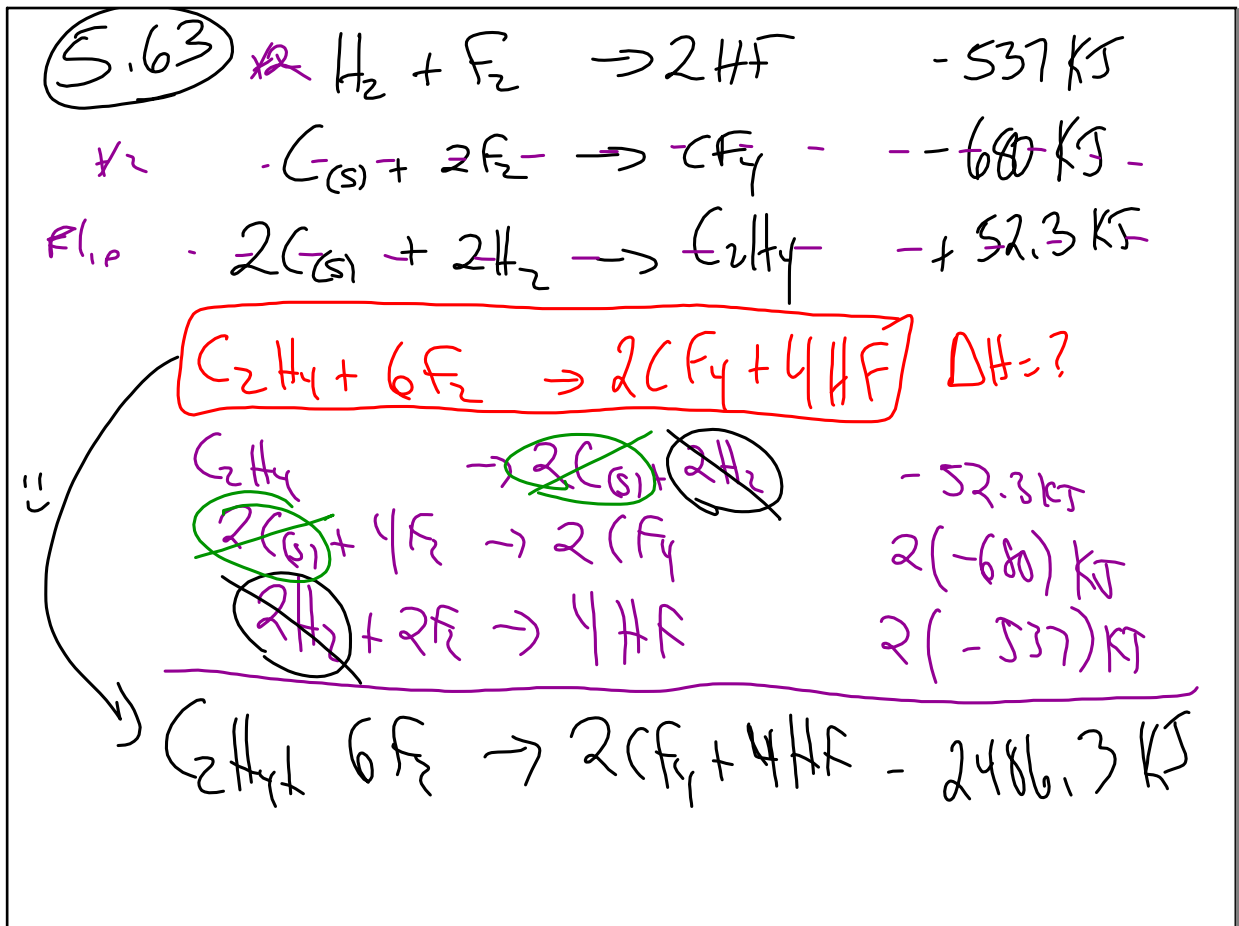 5.63 x2 H₂ + F₂ → 2HF -537 KJ
x2 C(s) + 2F₂ → CF₄ -680 KJ
Flip 2C(s) + 2H₂ → C₂H₄ + 52.3 KJ
C₂H₄ + 6F₂ → 2CF₄ + 4HF ΔH=?
C₂H₄ → 2C(s) + 2H₂ -52.3 KJ
2C(s) + 4F₂ → 2CF₄ 2(-680) KJ
2H₂ + 2F₂ → 4HF 2(-537) KJ
C₂H₄ + 6F₂ → 2CF₄ + 4HF - 2486.3 KJ